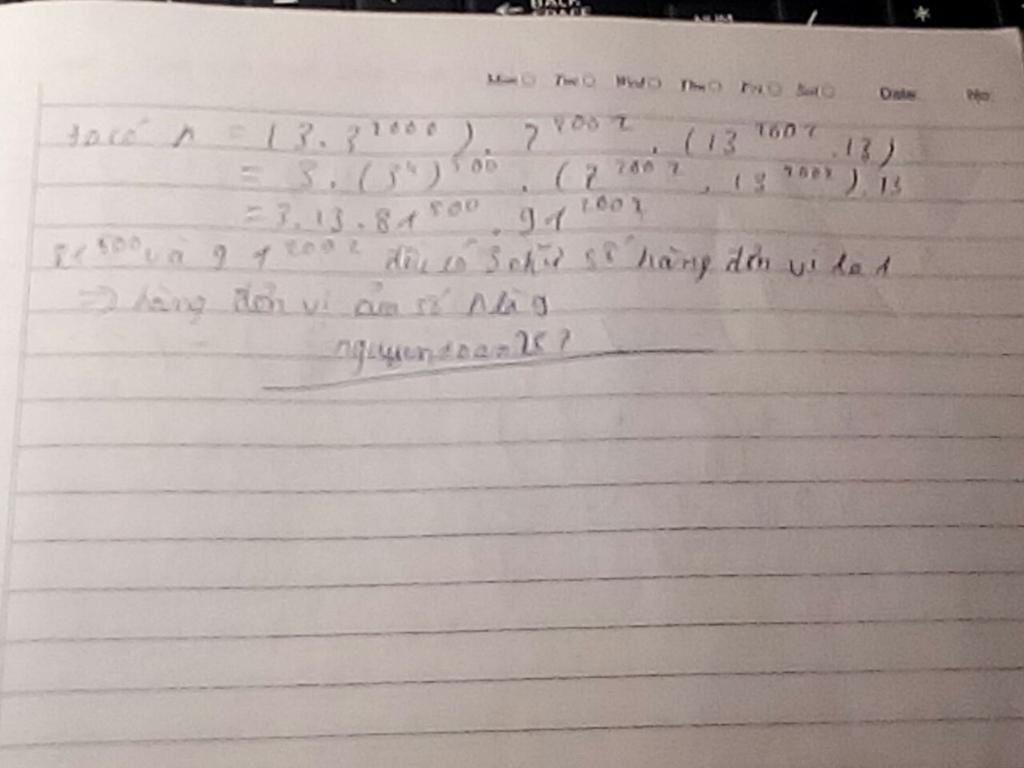 BACK
SPACE
NUM
/
*
Mon Tue Wed Thu Fri Sat Date No
ta có A = (3.3²⁰⁰⁰). 7²⁰⁰². (13²⁰⁰².13)
= 3.(3⁴)⁵⁰⁰. (7²⁰⁰². 13²⁰⁰²).13
= 3.13.81⁵⁰⁰. 91²⁰⁰²
81⁵⁰⁰ và 91²⁰⁰² đều có chữ số hàng đơn vị là 1
=> hàng đơn vị số A là 9